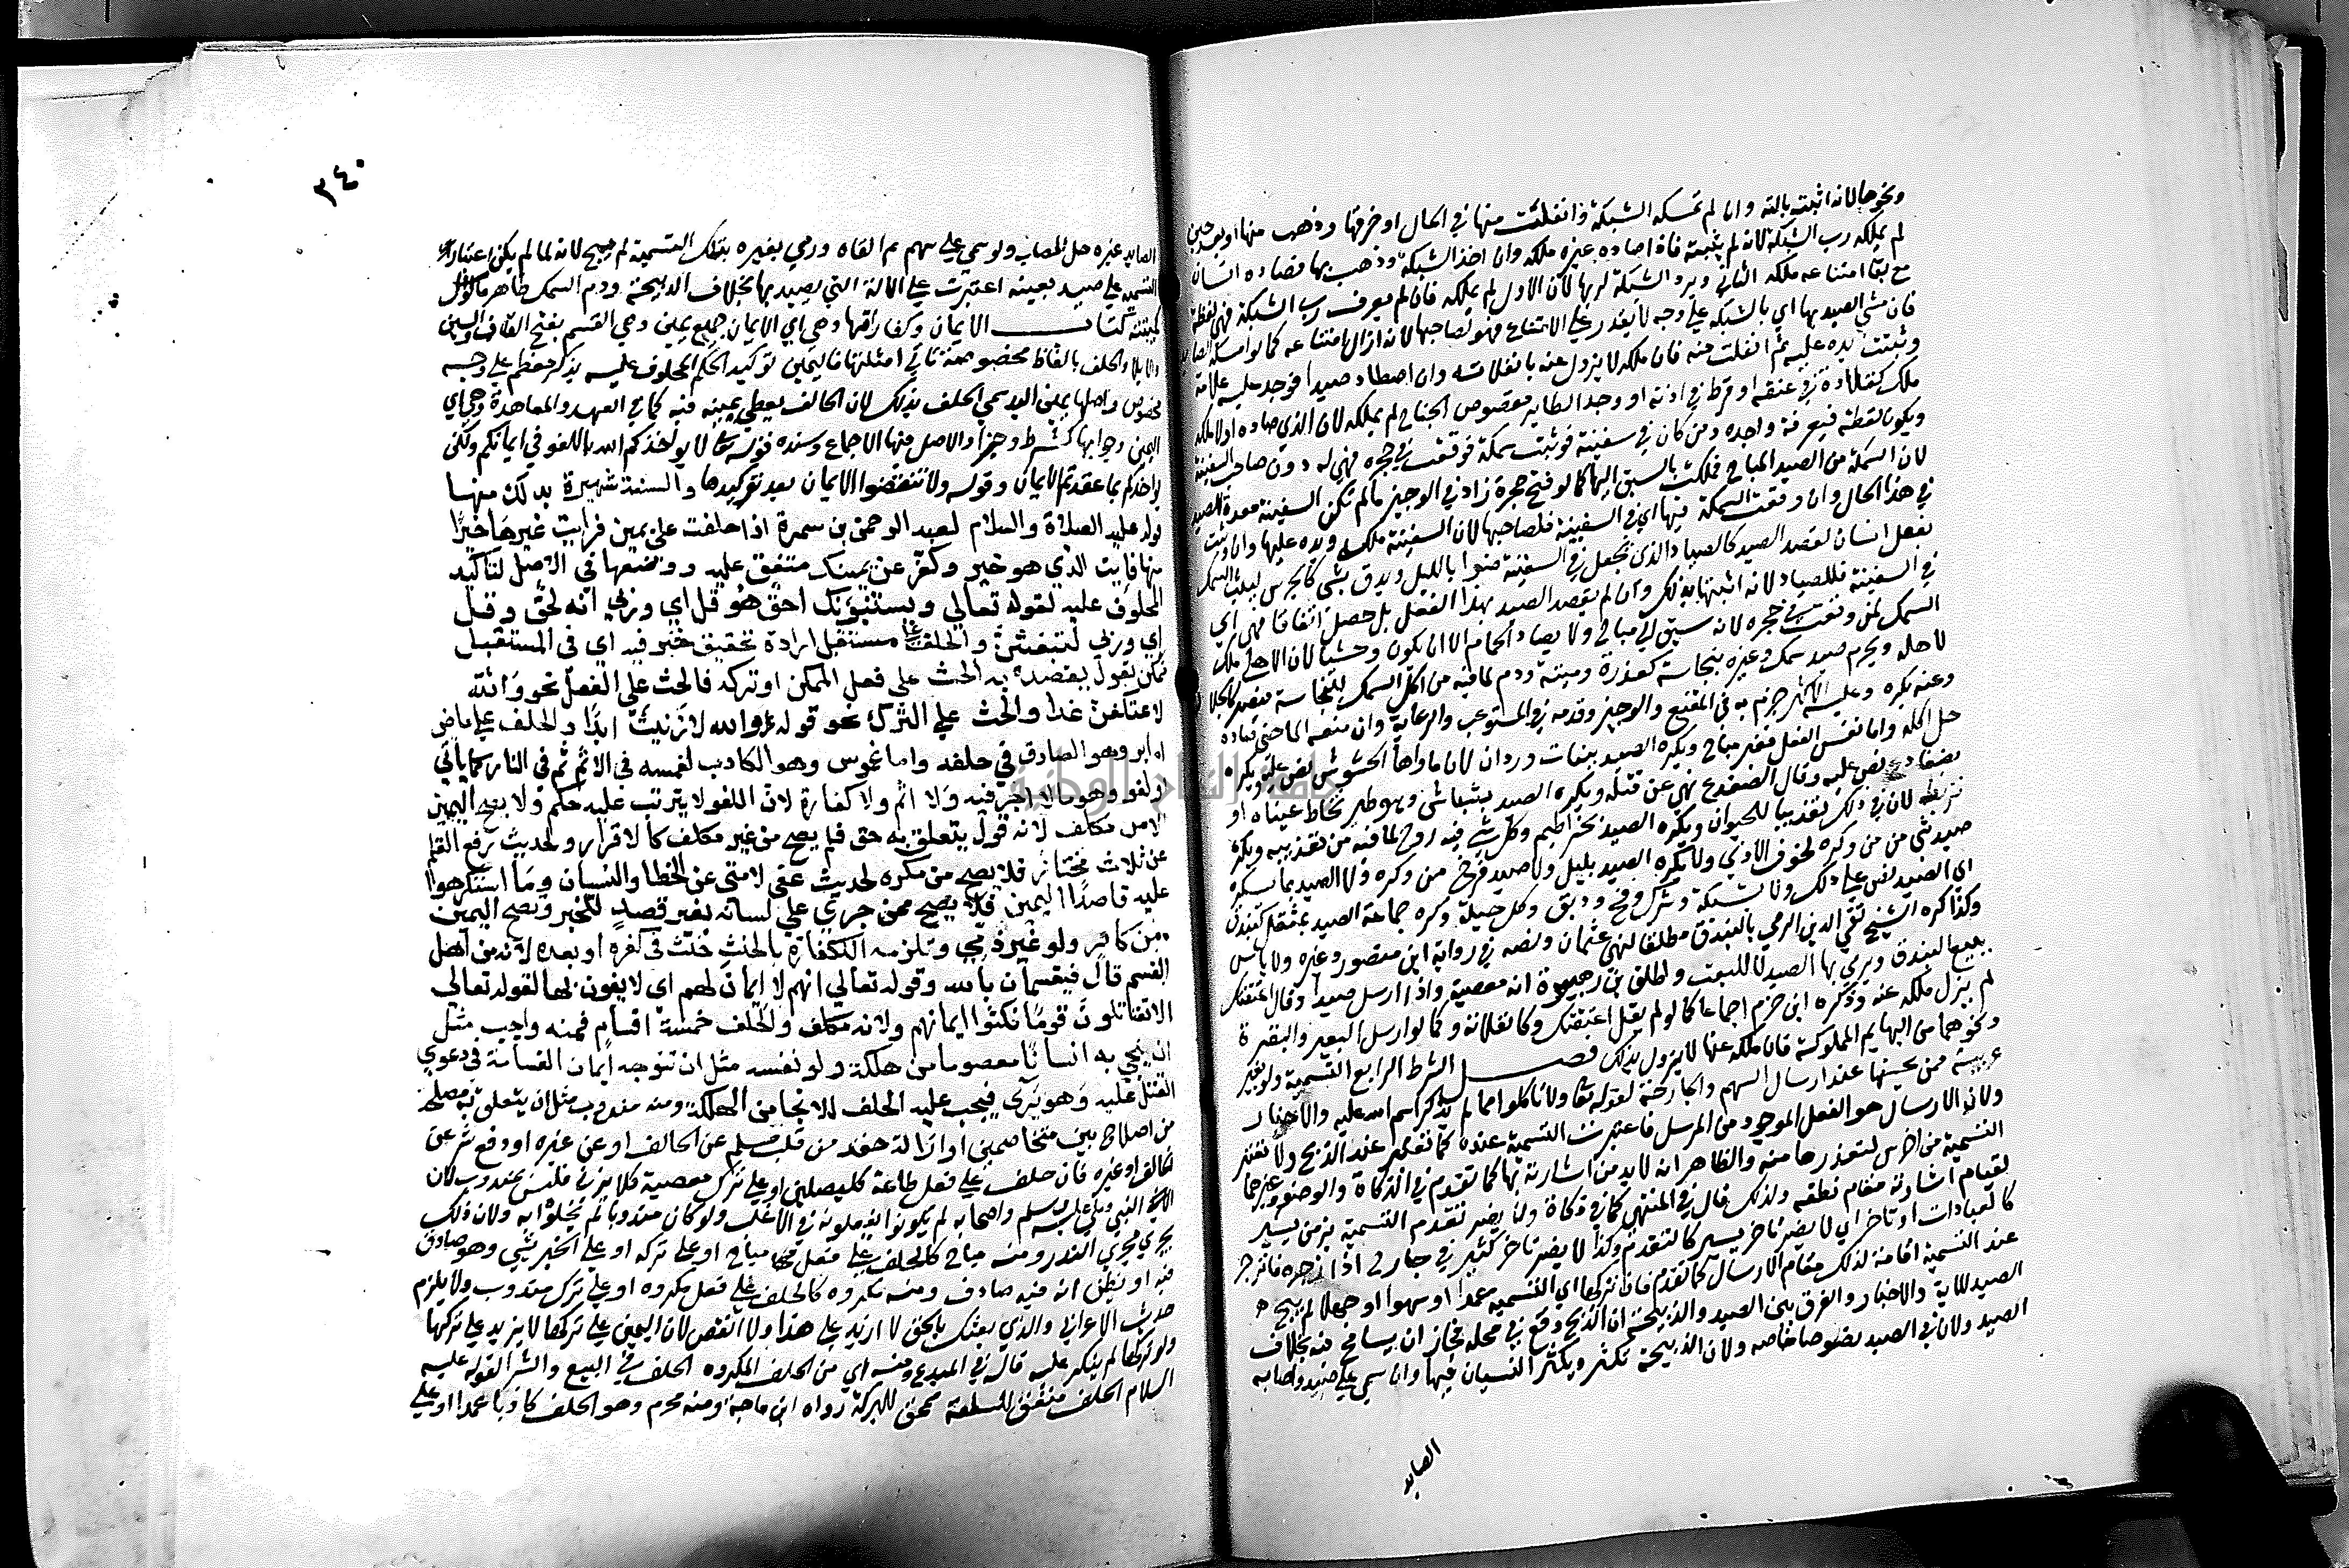 ونحوها لانه اثبته بالته وان لم تمسكه الشبكة وانفلتت منها في الحال او خرقها وذهب منها او بعد حين
لم يملكه رب الشبكة لانه لم يثبته فاذا صاده غيره ملكه وان اخذ الشبكة وذهب بها فصاده انسان
مع بقا امتناعه ملكه الثاني ويرد الشبكة لربها لان الاول لم يملكه فان لم يعرف رب الشبكة فهي لقطة
فان مشي الصيد بها اي بالشبكة على وجه لا يقدر على الامتناع فهو لصاحبها لانه ازال امتناعه كما لو امسكه الصايد
وثبتت يده عليه ثم انفلت منه فان ملكه لا يزول عنه بانفلاته وان اصطاد صيدا فوجد عليه علامة
ملك كقلادة في عنقه او قرط في اذنه او وجد الطاير مقصوص الجناح لم يملكه لان الذي صاده اولا ملكه
ويكون لقطة فيعرفه واجده ومن كان في سفينة فوثبت سمكة فوقعت في حجره فهي له دون صاحب السفينة
لان السمكة من الصيد المباح فملكت بالسبق اليها كما لو فتح حجره زاد في الوجيز ما لم تكن السفينة معدة للصيد
في هذا الحال وان وقعت السمكة فيها اي في السفينة فلصاحبها لان السفينة ملكه ويده عليها وان وثبت
بفعل انسان لقصد الصيد كالصياد الذي يجعل في السفينة ضوا بالليل ويدق بشي كالجرس ليثب السمك
في السفينة فللصياد لانه اثبتها بذلك وان لم يقصد الصيد بهذا الفعل بل حصل اتفاقا فهي اي
السمك لمن وقعت في حجره لانه سبق الي مباح ولا يصاد الحمام الا ان يكون وحشيا لان الاهلي ملك
لاهله ويحرم صيد سمك وغيره بنجاسة كعذرة وميتة ودم لما فيه من اكل السمك للنجاسة فيصير كالجلالة
وعنه يكره وعليه الاكثر جزم به في المقنع والوجيز وقدمه في المستوعب والرعاية وان منعه الماحتي صاده
حل اكله واما نفس الفعل فغير مباح ويكره الصيد ببنات وردان لان ماواها الحشوش نص عليه ويكره
بضفادع نص عليه وقال الضفدع نهي عن قتله ويكره الصيد بشباش وهو طير تخاط عيناه او
يربط لان في ذلك تعذيبا للحيوان ويكره الصيد بخراطيم وكل شي فيه روح لما فيه من تعذيبه ويكره
صيد شي من وكره لخوف الاذي ولا يكره الصيد بليل ولا صيد فرخ من وكره ولا الصيد بما يسكره
اي الصيد نص على ذلك ولا شبكة وشرك وفخ ودبق وكل حيلة وكره جماعة الصيد بمثقل كبندق
وكذا كره الشيخ تقي الدين الرمي بالبندق مطلقا لنهي عثمان ونصه في رواية ابن منصور وغيره ولا باس
ببيع البندق ويرمي بها الصيد لا للعبث واطلق بن هبيرة انه معصية واذا ارسل صيدا وقال اعتقتك
لم يزل ملكه عنه وذكره ابن حزم اجماعا كما لو لم يقل اعتقتك وكانفلاته وكما لو ارسل البعير والبقرة
ونحوهما من البهايم المملوكة فان ملكه عنها لا يزول بذلك فصل الشرط الرابع التسمية ولو بغير
عربية ممن يحسنها عند ارسال السهم والجارحة لقوله تعا ولا تاكلوا مما لم يذكر اسم الله عليه والاخبار
ولان الارسال هو الفعل الموجود من المرسل فاعتبرت التسمية عنده كما تعتبر عند الذبح ولا تعتبر
التسمية من اخرس لتعذرها منه والظاهر انه لا بد من اشارته بها كما تقدم في الذكاة والوضو وغيرهما
لقيام اشارته مقام نطقه ولذلك قال في المنتهي كما في ذكاة ولا يضر تقدم التسمية بزمن يسير
كالعبادات او تاخر اي لا يضر تاخر يسير كالتقدم وكذا لا يضر تاخر كثير في جارح اذا زجره فانزجر
عند التسمية اقامة لذلك مقام الارسال كما تقدم فان تركها اي التسمية عمدا او سهوا او جهلا لم يبح
الصيد للاية والاخبار والفرق بين الصيد والذبيحة ان الذبح وقع في محله فجاز ان يسامح فيه بخلاف
الصيد ولان في الصيد نصوصا خاصه ولان الذبيحة تكثر ويكثر النسيان فيها وان سمي على صيد واصابه
الصايد
٣٤٠
الصايد غيره حل المصاب ولو سمي على سهم ثم القاه ورمي بغيره بتلك التسمية لم يبح لانه لما لم يكن اعتبار
التسمية على صيد بعينه اعتبرت على الالة التي يصيد بها بخلاف الذبيحة ودم السمك طاهر ماكول
كميتته كتاب الايمان وكفاراتها وهي اي الايمان جمع يمين وهي القسم بفتح القاف والسين
والايلا والحلف بالفاظ مخصوصة تاتي امثلتها فاليمين توكيد الحكم المحلوف عليه بذكر معظم على وجه
مخصوص واصلها يمين اليد سمي الحلف بذلك لان الحالف يعطي يمينه فيه كما في العهد والمعاهدة وهي اي
اليمين وجوابها كشرط وجزا والاصل فيها الاجماع وسنده قوله تعا لا يواخذكم الله باللغو في ايمانكم ولكن
يواخذكم بما عقدتم الايمان وقوله ولا تنقضوا الايمان بعد توكيدها والسنة شهيرة بذلك منها
قوله عليه الصلاة والسلام لعبد الرحمن بن سمرة اذا حلفت على يمين فرايت غيرها خيرا
منها فايت الذي هو خير وكفر عن يمينك متفق عليه ووضعها في الاصل لتاكيد
المحلوف عليه لقوله تعالي ويستنبؤنك احق هو قل اي وربي انه لحق وقل
اي وربي لتبعثن والحلف على مستقبل ارادة تحقيق خبر فيه اي في المستقبل
ممكن بقول يقصد به الحث على فعل الممكن او تركه فالحث على الفعل نحو والله
لاعتكفن غدا والحث على الترك نحو قوله والله لا زنيت ابدا والحلف على ماض
اما بر وهو الصادق في حلفه واما غموس وهو الكاذب لغمسه في الاثم ثم في النار كما ياتي
او لغو وهو مالا اجر فيه ولا اثم ولا كفارة لان اللغو لا يترتب عليه حكم ولا يصح اليمين
الا من مكلف لانه قول يتعلق به حق فلم يصح من غير مكلف كالاقرار ولحديث رفع القلم
عن ثلاث مختار فلا يصح من مكره لحديث عفي لامتي عن الخطا والنسيان وما استكرهوا
عليه قاصدا اليمين فلا يصح ممن جري على لسانه بغير قصد للخبر ويصح اليمين
من كافر ولو غير ذمي وتلزمه الكفارة بالحنث حنث في كفره او بعده لانه من اهل
القسم قال فيقسمان بالله وقوله تعالي انهم لا ايمان لهم اي لا يفون بها لقوله تعالي
الا تقاتلون قوما نكثوا ايمانهم ولانه مكلف والحلف خمسة اقسام فمنه واجب مثل
ان ينجي به انسانا معصوما من هلكة ولو نفسه مثل ان تتوجه ايمان القسامة في دعوي
القتل عليه وهو بري فيجب عليه الحلف للانجا من الهلكة ومنه مندوب مثل ان يتعلق به مصلحة
من اصلاح بين متخاصمين او ازالة حقد من قلب مسلم عن الحالف او عن غيره او دفع شر عن
الحالف او غيره فان حلف على فعل طاعة كليصلين او على ترك معصية كلا يزني فليس بمندوب لان
النبي صلى الله عليه وسلم واصحابه لم يكونوا يفعلونه في الاغلب ولو كان مندوبا لم يخلوا به ولان ذلك
يجري مجري النذر ومنه مباح كالحلف على فعل مباح او على تركه او على الخبر بشي وهو صادق
فيه او يظن انه فيه صادق ومنه مكروه كالحلف على فعل مكروه او على ترك مندوب ولا يلزم
حديث الاعرابي والذي بعثك بالحق لا ازيد على هذا ولا انقص لان اليمين على تركها لا يزيد على تركها
ولو تركها لم ينكر عليه قال في المبدع ومنه اي من الحلف المكروه الحلف في البيع والشرا لقوله عليه
السلام الحلف منفق للسلعة ممحق للبركة رواه ابن ماجه ومنه محرم وهو الحلف كاذبا عمدا او على